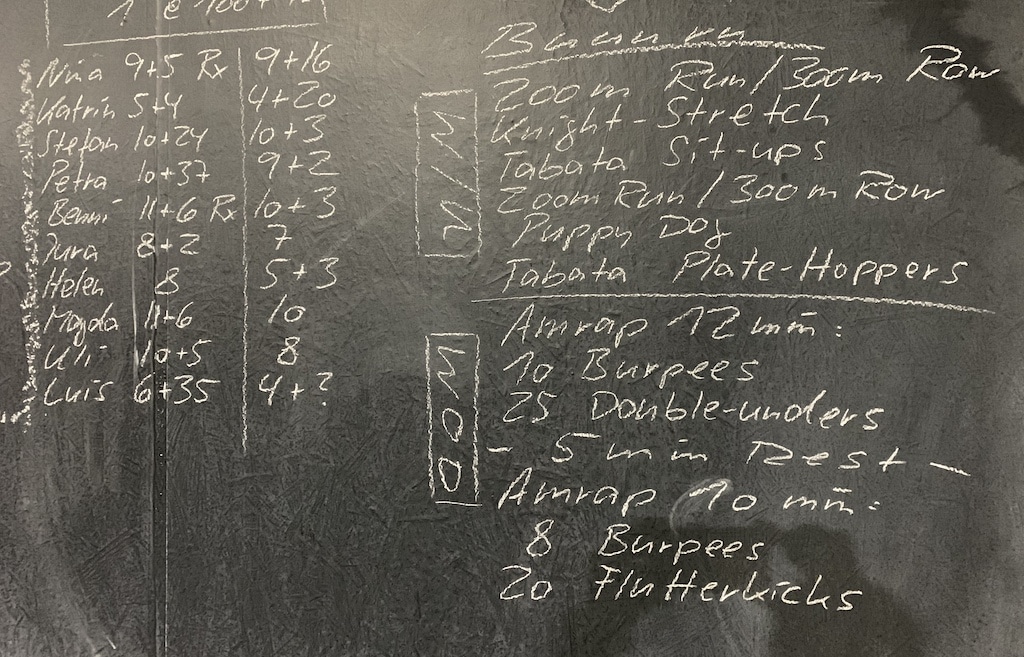 1 @ 100+
Nina 9+5 Rx 9+16
Katrin 5+4 4+20
Stefan 10+24 10+3
Petra 10+37 9+2
Benni 11+6 Rx 10+3
Jura 8+2 7
Helen 8 5+3
Magda 11+6 10
Uli 10+5 8
Luis 6+35 4+?
W/U
200m Run/300m Row
Knight-Stretch
Tabata Sit-ups
200m Run/300m Row
Puppy Dog
Tabata Plate-Hoppers
WOD
Amrap 12 min:
10 Burpees
25 Double-unders
- 5 min Rest -
Amrap 10 min:
8 Burpees
20 Flutterkicks